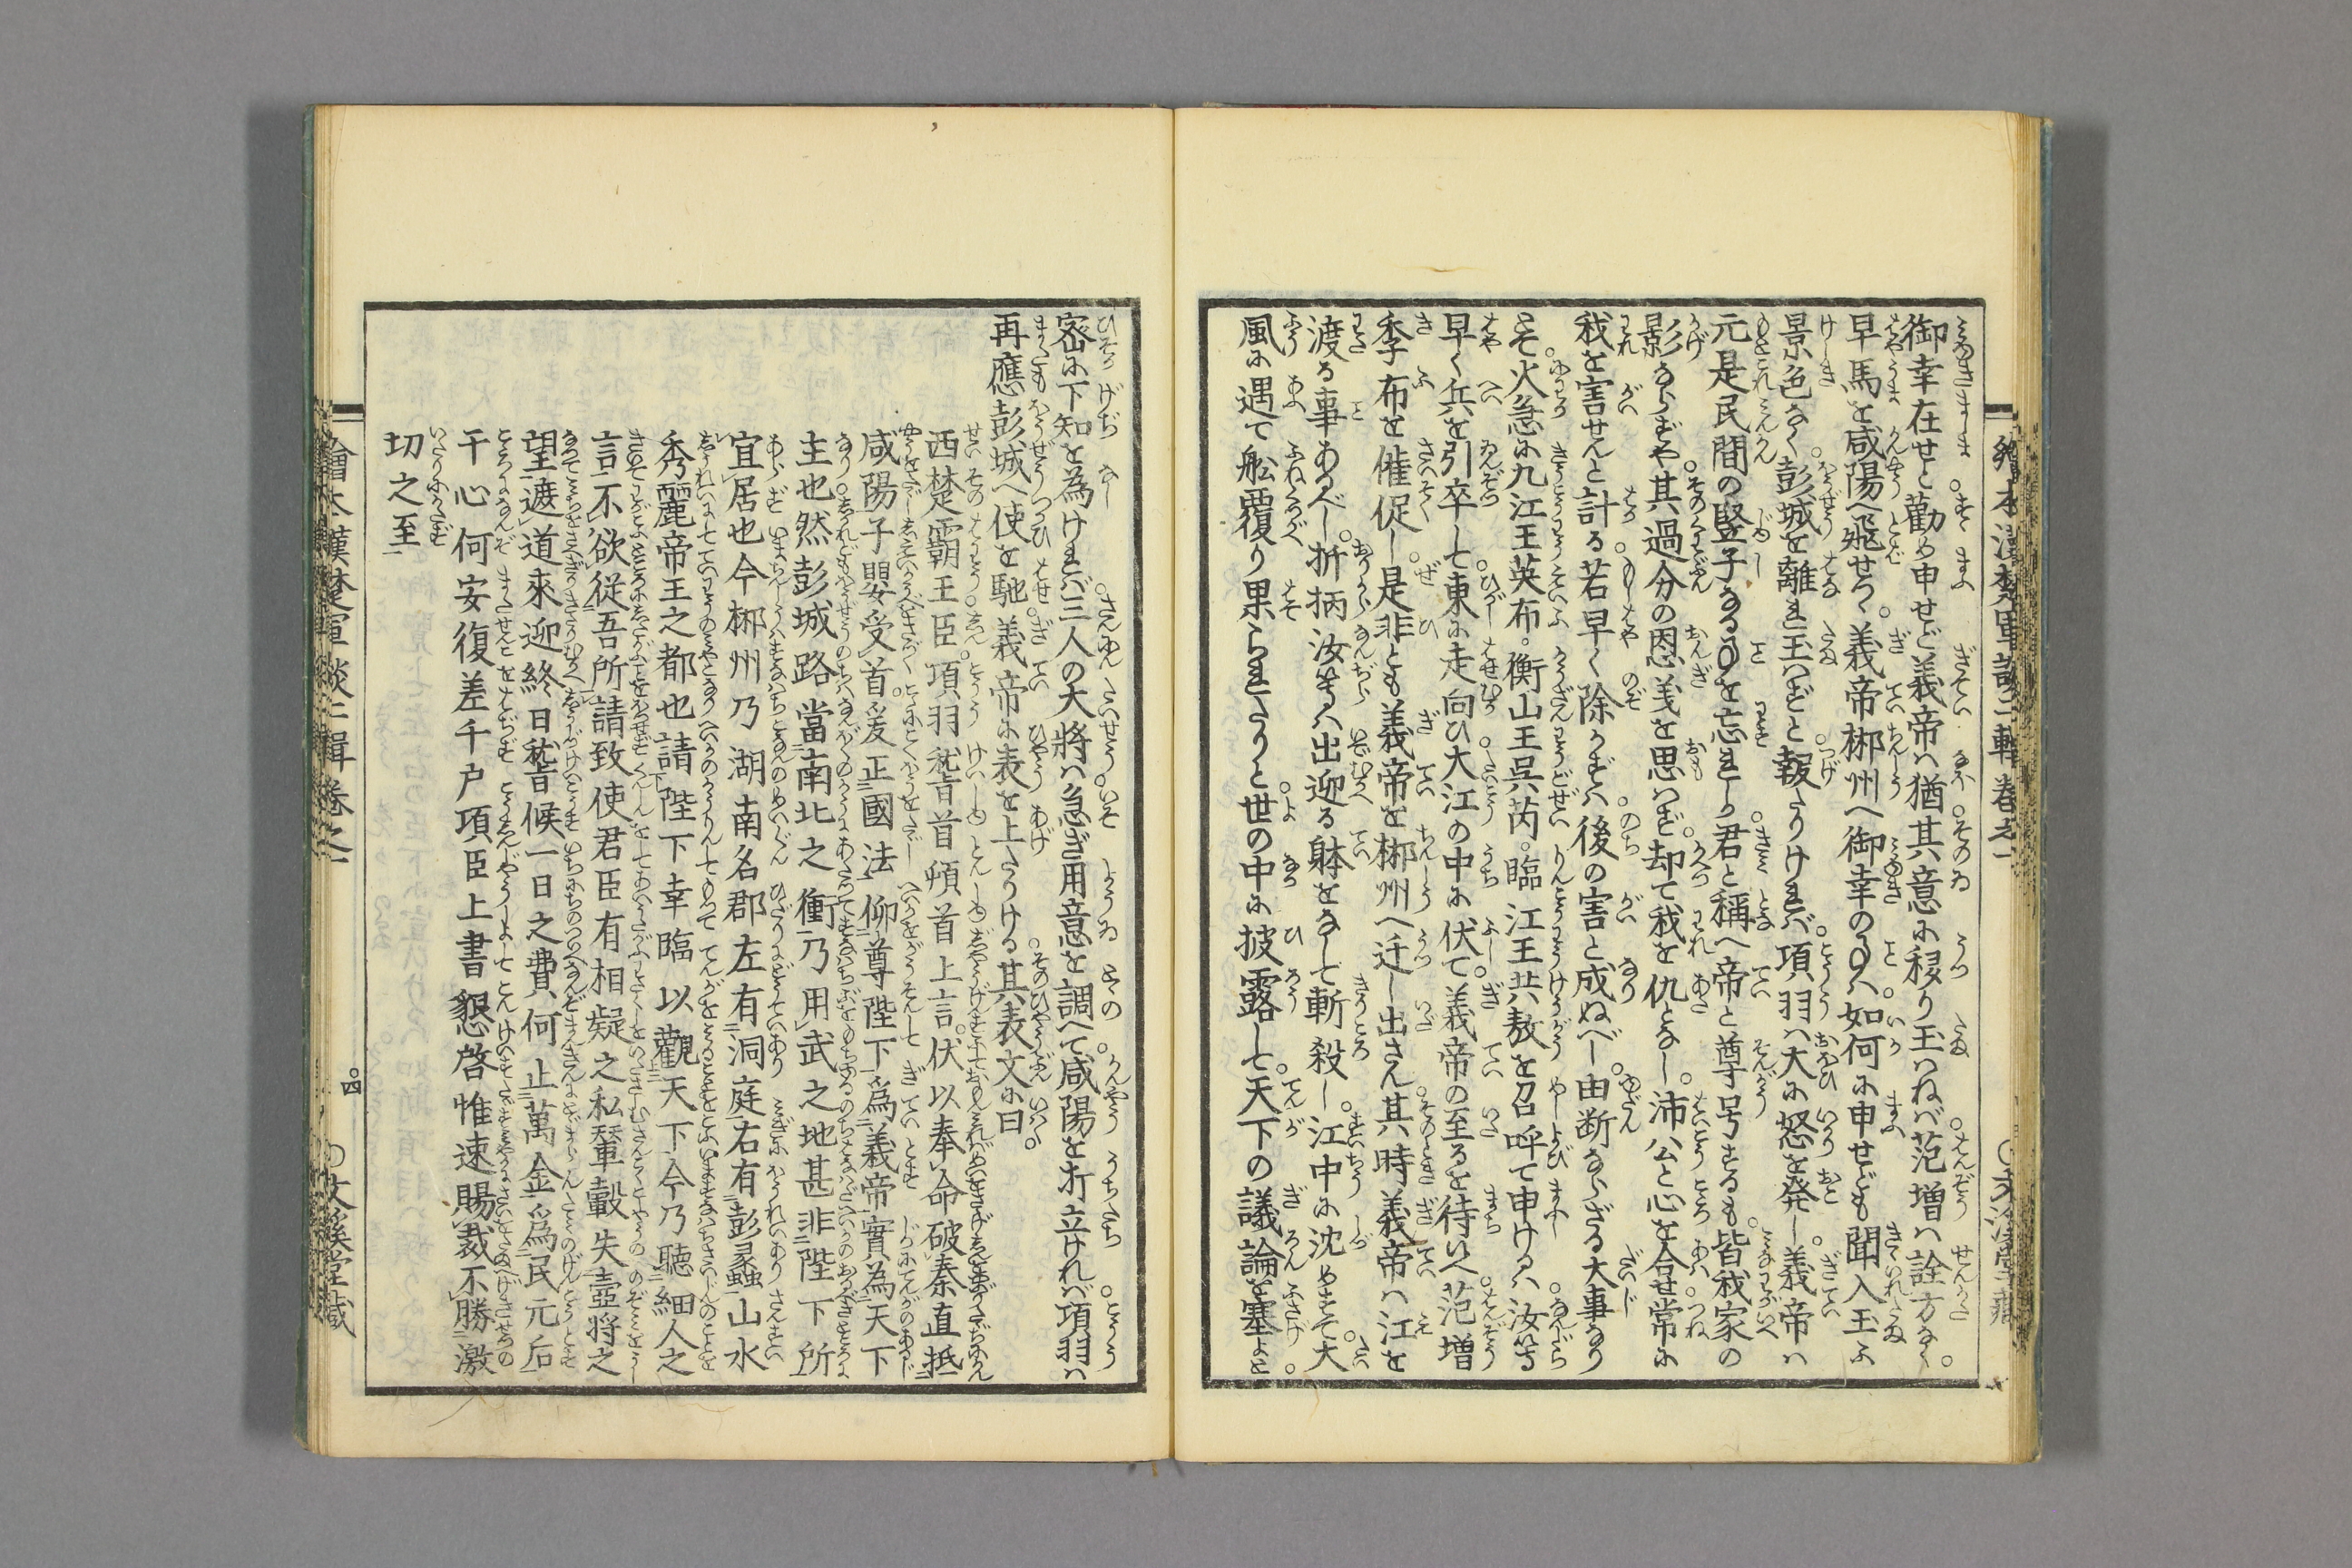 御幸在せと勸め申せど義帝ハ猶其意に移り玉ハねバ范増ハ詮方なく
早馬を咸陽へ飛せつゝ義帝郴州へ御幸のことハ如何に申せども聞入玉ふ
景色なく彭城を離れ玉ハずと報たりけれバ項羽ハ大に怒を発し義帝ハ
元是民間の竪子なることを忘れしか君と稱へ帝と尊号するも皆我家の
影ならずや其過分の恩義を思ハず却て我を仇となし沛公と心を合せ常に
我を害せんと計る若早く除かずバ後の害と成ぬべし由断ならざる大事なり
とぞ火急に九江王英布衡山王呉芮臨江王共敖を召呼て申けるハ汝等
早く兵を引卒して東に走向ひ大江の中に伏て義帝の至るを待いへ范増
季布を催促し是非とも義帝を郴州へ迁し出さん其時義帝ハ江を
渡る事あるべし折柄汝等ハ出迎る躰をなして斬殺し江中に沈めすて大
風に遇て舩覆り果られたりと世の中に披露して天下の議論を塞よと
密に下知を為けれバ三人の大將ハ急ぎ用意を調へて咸陽を打立けれバ項羽ハ
再應彭城へ使を馳義帝に表を上たりける其表文に曰
西楚霸王臣項羽稽首頓首上言伏以奉命破秦直抵
咸陽子嬰受首爰正國法仰尊陛下爲義帝實為天下
主也然彭城路當南北之衝乃用武之地甚非陛下所
宜居也今郴州乃湖南名郡左有洞庭右有彭蠡山水
秀麗帝王之都也請陛下幸臨以觀天下今乃聽細人之
言不欲從吾所請致使君臣有相疑之私輦轂失壺將之
望遮道來迎終日稽候一日之費何止萬金爲民元后
干心何安復差千户項臣上書懇啓惟速賜裁不勝激
切之至
繪本漢楚軍談二輯卷之一
四
〇文溪堂藏